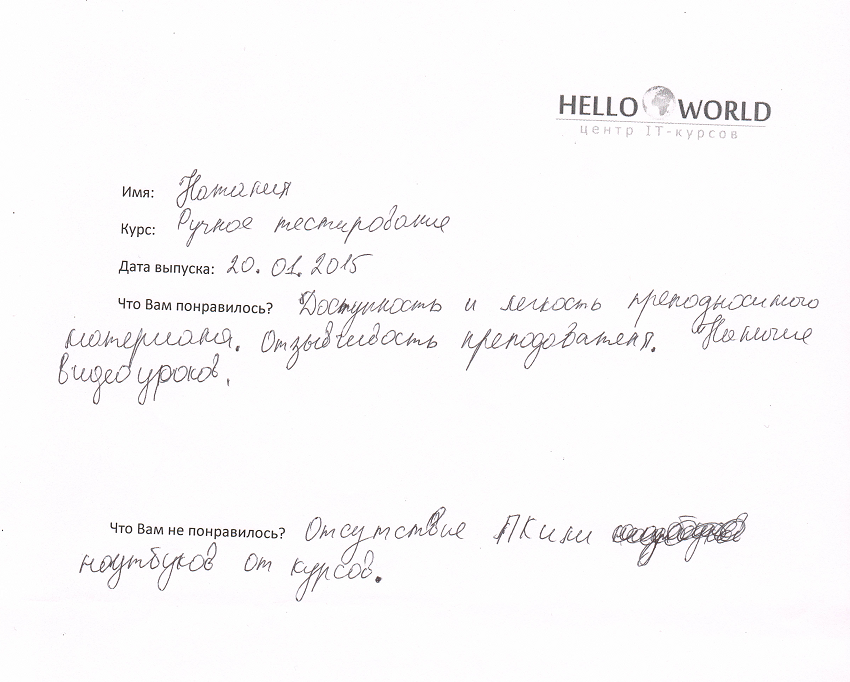 HELLO WORLD
центр IT-курсов
Имя: Наталия
Курс: Ручное тестирование
Дата выпуска: 20.01.2015
Что Вам понравилось? Доступность и легкость преподносимого
материала. Отзывчивость преподователя. Наличие
видео уроков.
Что Вам не понравилось? Отсутствие ПК или
ноутбуков от курсов.